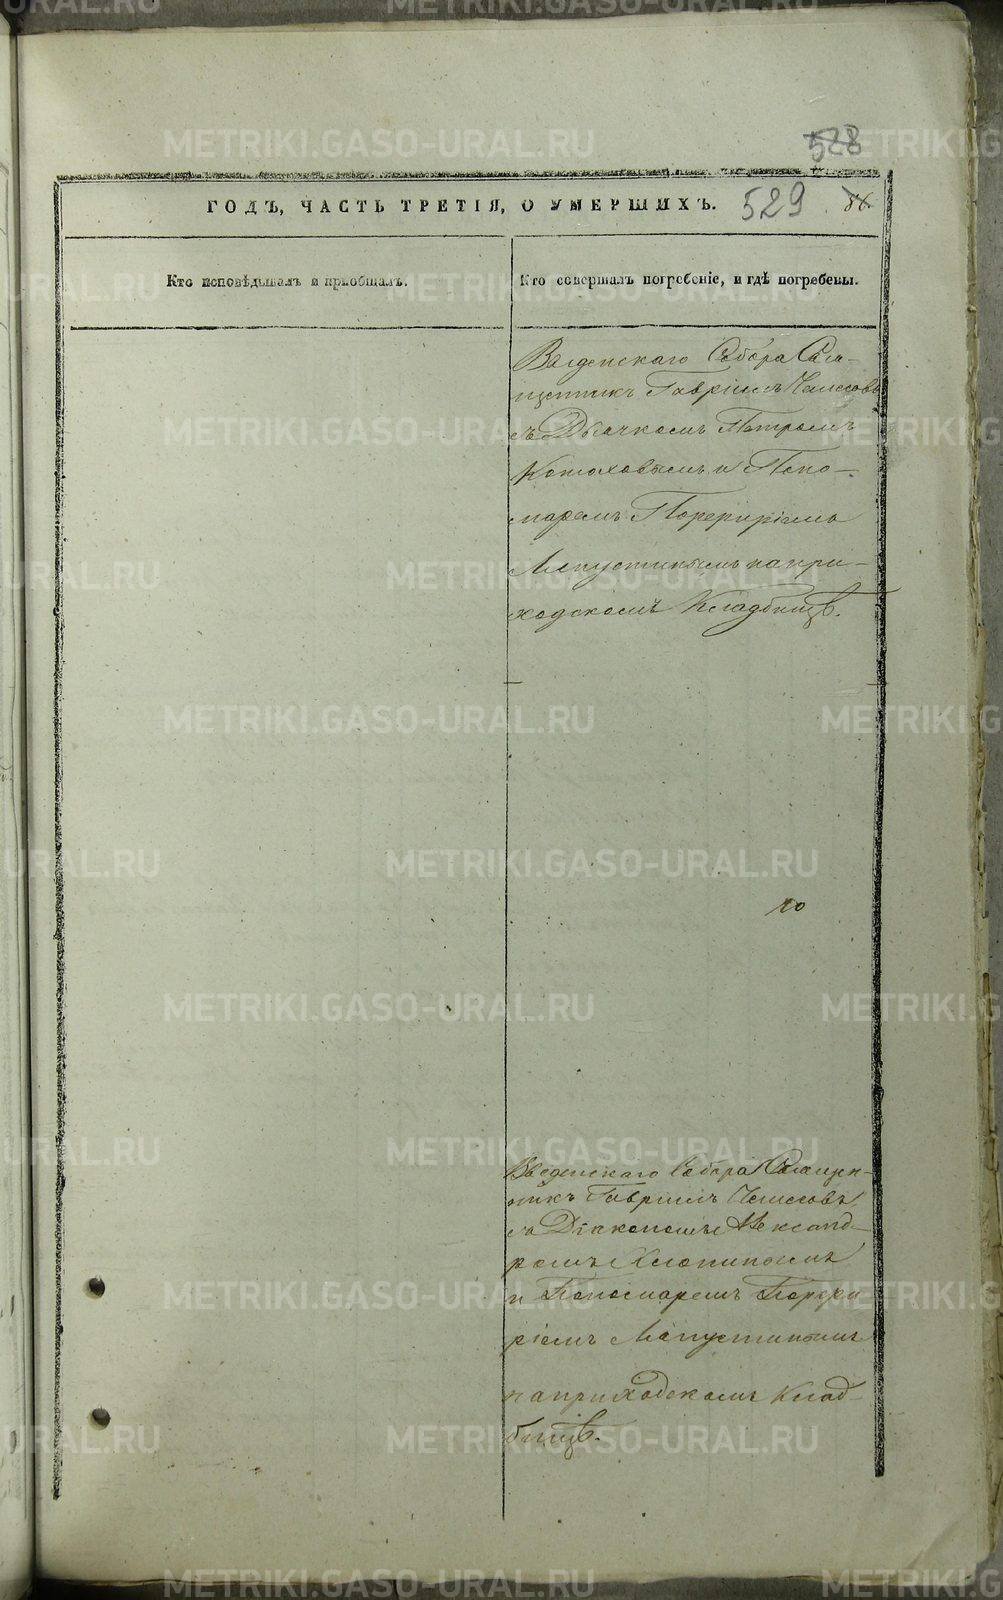 528
ГОДЪ, ЧАСТЬ ТРЕТІЯ, О УМЕРШИХЪ. 529
Кто исповѣдывалъ и пріобщалъ.
Кто совершалъ погребеніе, и гдѣ погребены.
Введенскаго Собора Свя-
щенникъ Гавріилъ
съ Дьячкомъ Петромъ
и Поно-
маремъ Порфиріемъ
Ляпустинымъ на при-
ходскомъ Кладбищѣ.
Введенскаго Собора Священ-
никъ Гавріилъ
съ Діакономъ Александ-
ромъ Хлопинымъ
и Пономаремъ Порфи
ріемъ Ляпустинымъ
на приходскомъ Клад-
бищѣ.
METRIKI.GASO-URAL.RU